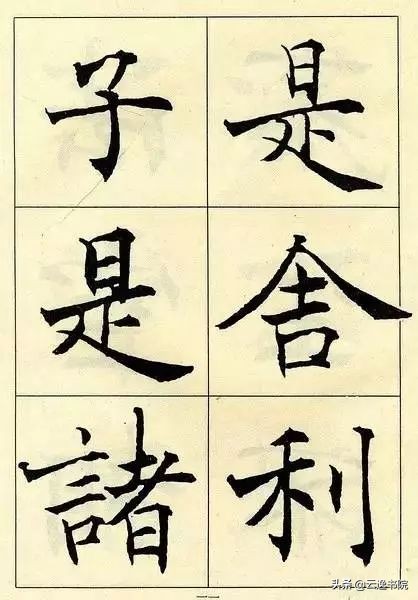 是舍利
子是諸
二
头条@云逸书院